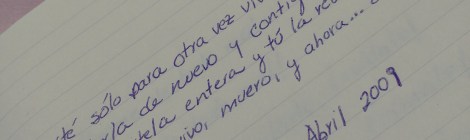 té sólo para otra vez viv
rla de nuevo y contig
tela entera y tú la re
vivo, muero, y ahora...
Abril 2009